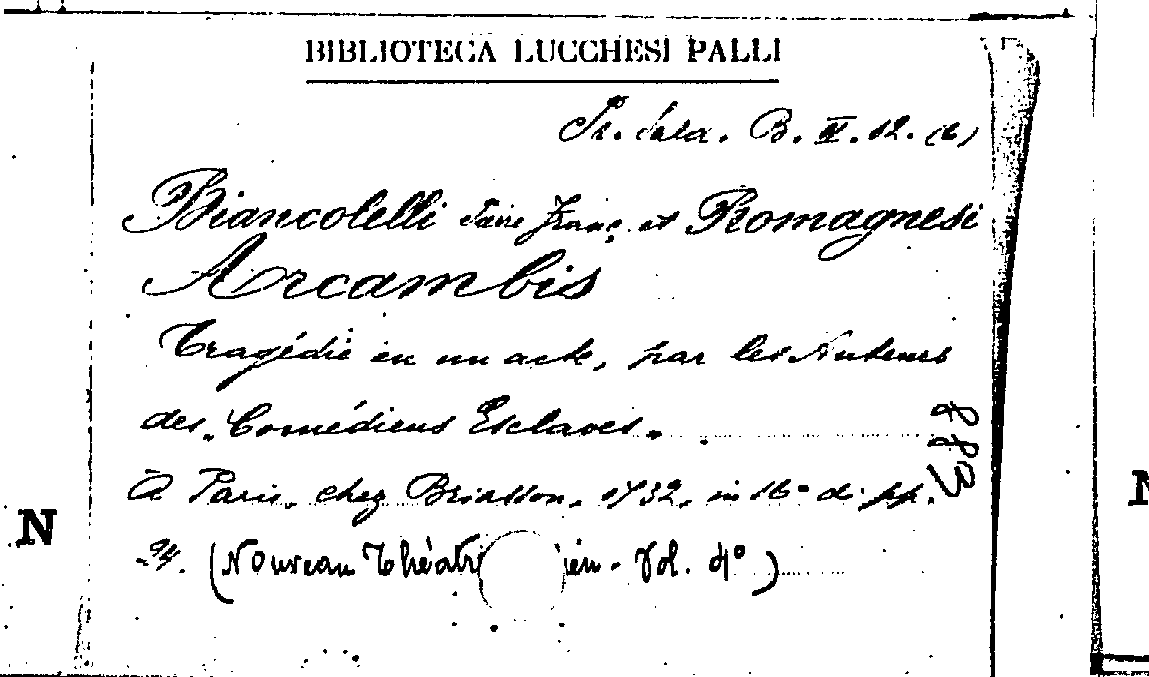 BIBLIOTECA LUCCHESI PALLI
Pr. Sala. B. IV. 12. (6)
Biancolelli Franç. et Romagnesi
Arcambis
Tragédie en un acte, par les Auteurs
des "Comédiens Esclaves"
A Paris, chez Briasson, 1732, in 16° di pp.
24. (Nouveau Théatr ien - Vol. 4°)
883
N